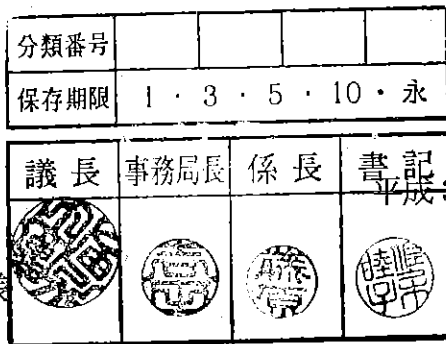 分類番号
保存期限 1・3・5・10・永
議長 事務局長 係長 書記
平成